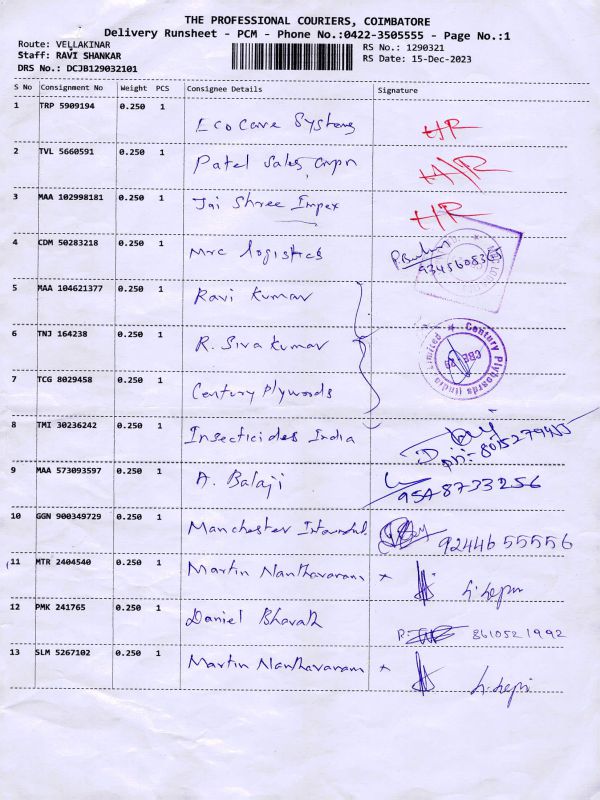 THE PROFESSIONAL COURIERS, COIMBATORE
Delivery Runsheet - PCM - Phone No.:0422-3505555 - Page No.:1
Route: VELLAKINAR RS No.: 1290321
Staff: RAVI SHANKAR RS Date: 15-Dec-2023
DRS No.: DCJB129032101
S No Consignment No Weight PCS Consignee Details Signature
1 TRP 5909194 0.250 1
Eco Care Systems HR
2 TVL 5660591 0.250 1
Patel Sales Corpn
3 MAA 102998181 0.250 1
Jai Shree Impex HR
4 CDM 50283218 0.250 1
Mrc logistics
5 MAA 104621377 0.250 1
Ravi Kumar
6 TNJ 164238 0.250 1
R. Siva Kumar
Century Plyboards (India) Limited
7 TCG 8029458 0.250 1
Century Plywoods
8 TMI 30236242 0.250 1
Insecticides India
9 MAA 573093597 0.250 1
A. Balaji
10 GGN 900349729 0.250 1
Manchester 9244655556
11 MTR 2404540 0.250 1
Martin Nanthavanam
12 PMK 241765 0.250 1
Daniel Bharath 8610521992
13 SLM 5267102 0.250 1
Martin Nanthavanam